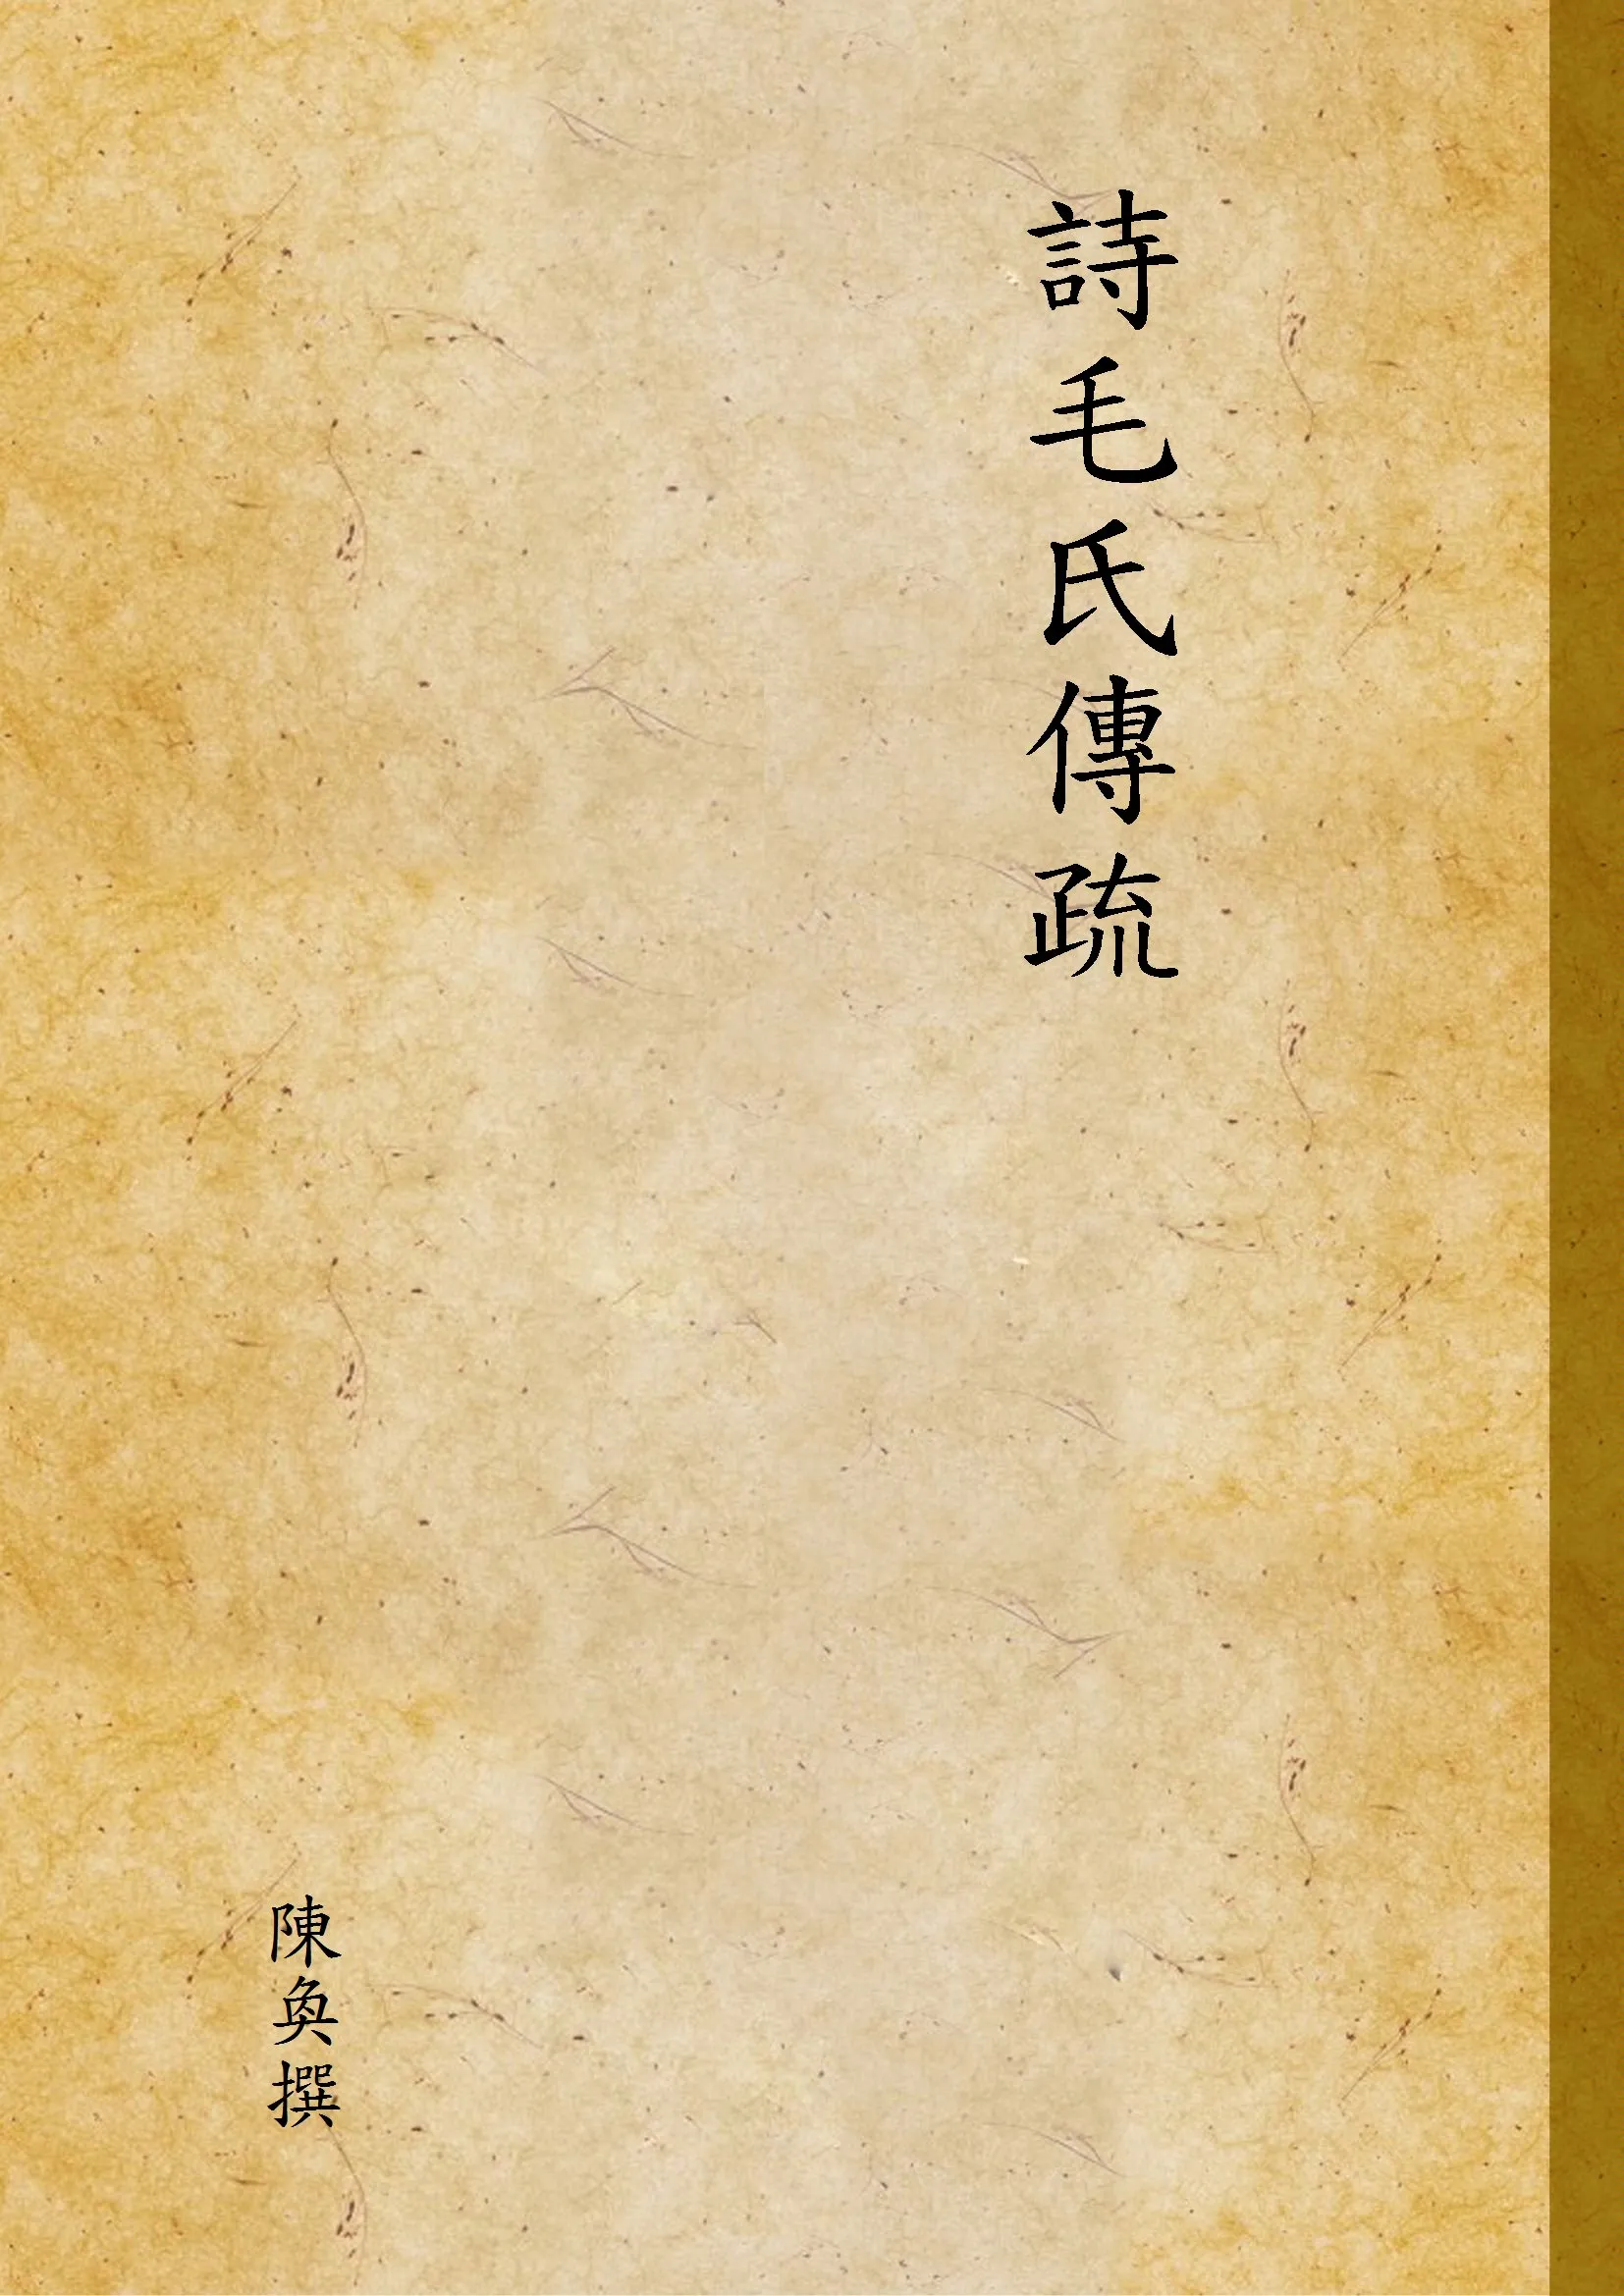 詩毛氏傳疏
陳奐撰